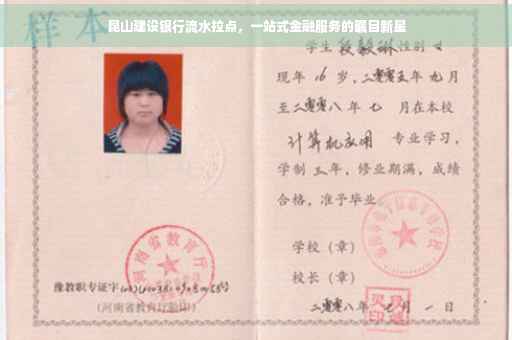 昆山建设银行流水拉点，一站式金融服务的瞩目新星
样本
学生 段毅琳 性别 女
现年 16 岁，二零零五年 九月
至二零零八年 七 月在本校
计算机应用 专业学习，
学制 三年，修业期满，成绩
合格，准予毕业。
学校（章）
校长（章）
二零零八年 七月 一日
河南省教育厅
豫教职专证字
（河南省教育厅验印）